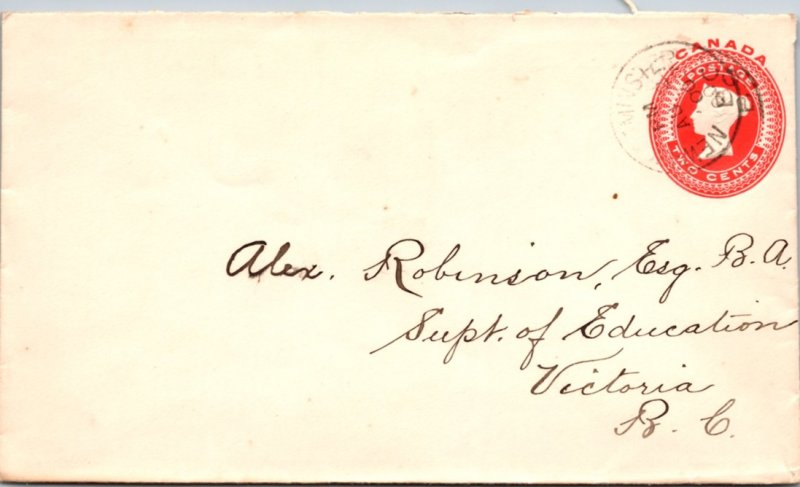 CANADA
POSTAGE
TWO CENTS
Alex. Robinson, Esq. B.A.
Supt. of Education
Victoria
B.C.